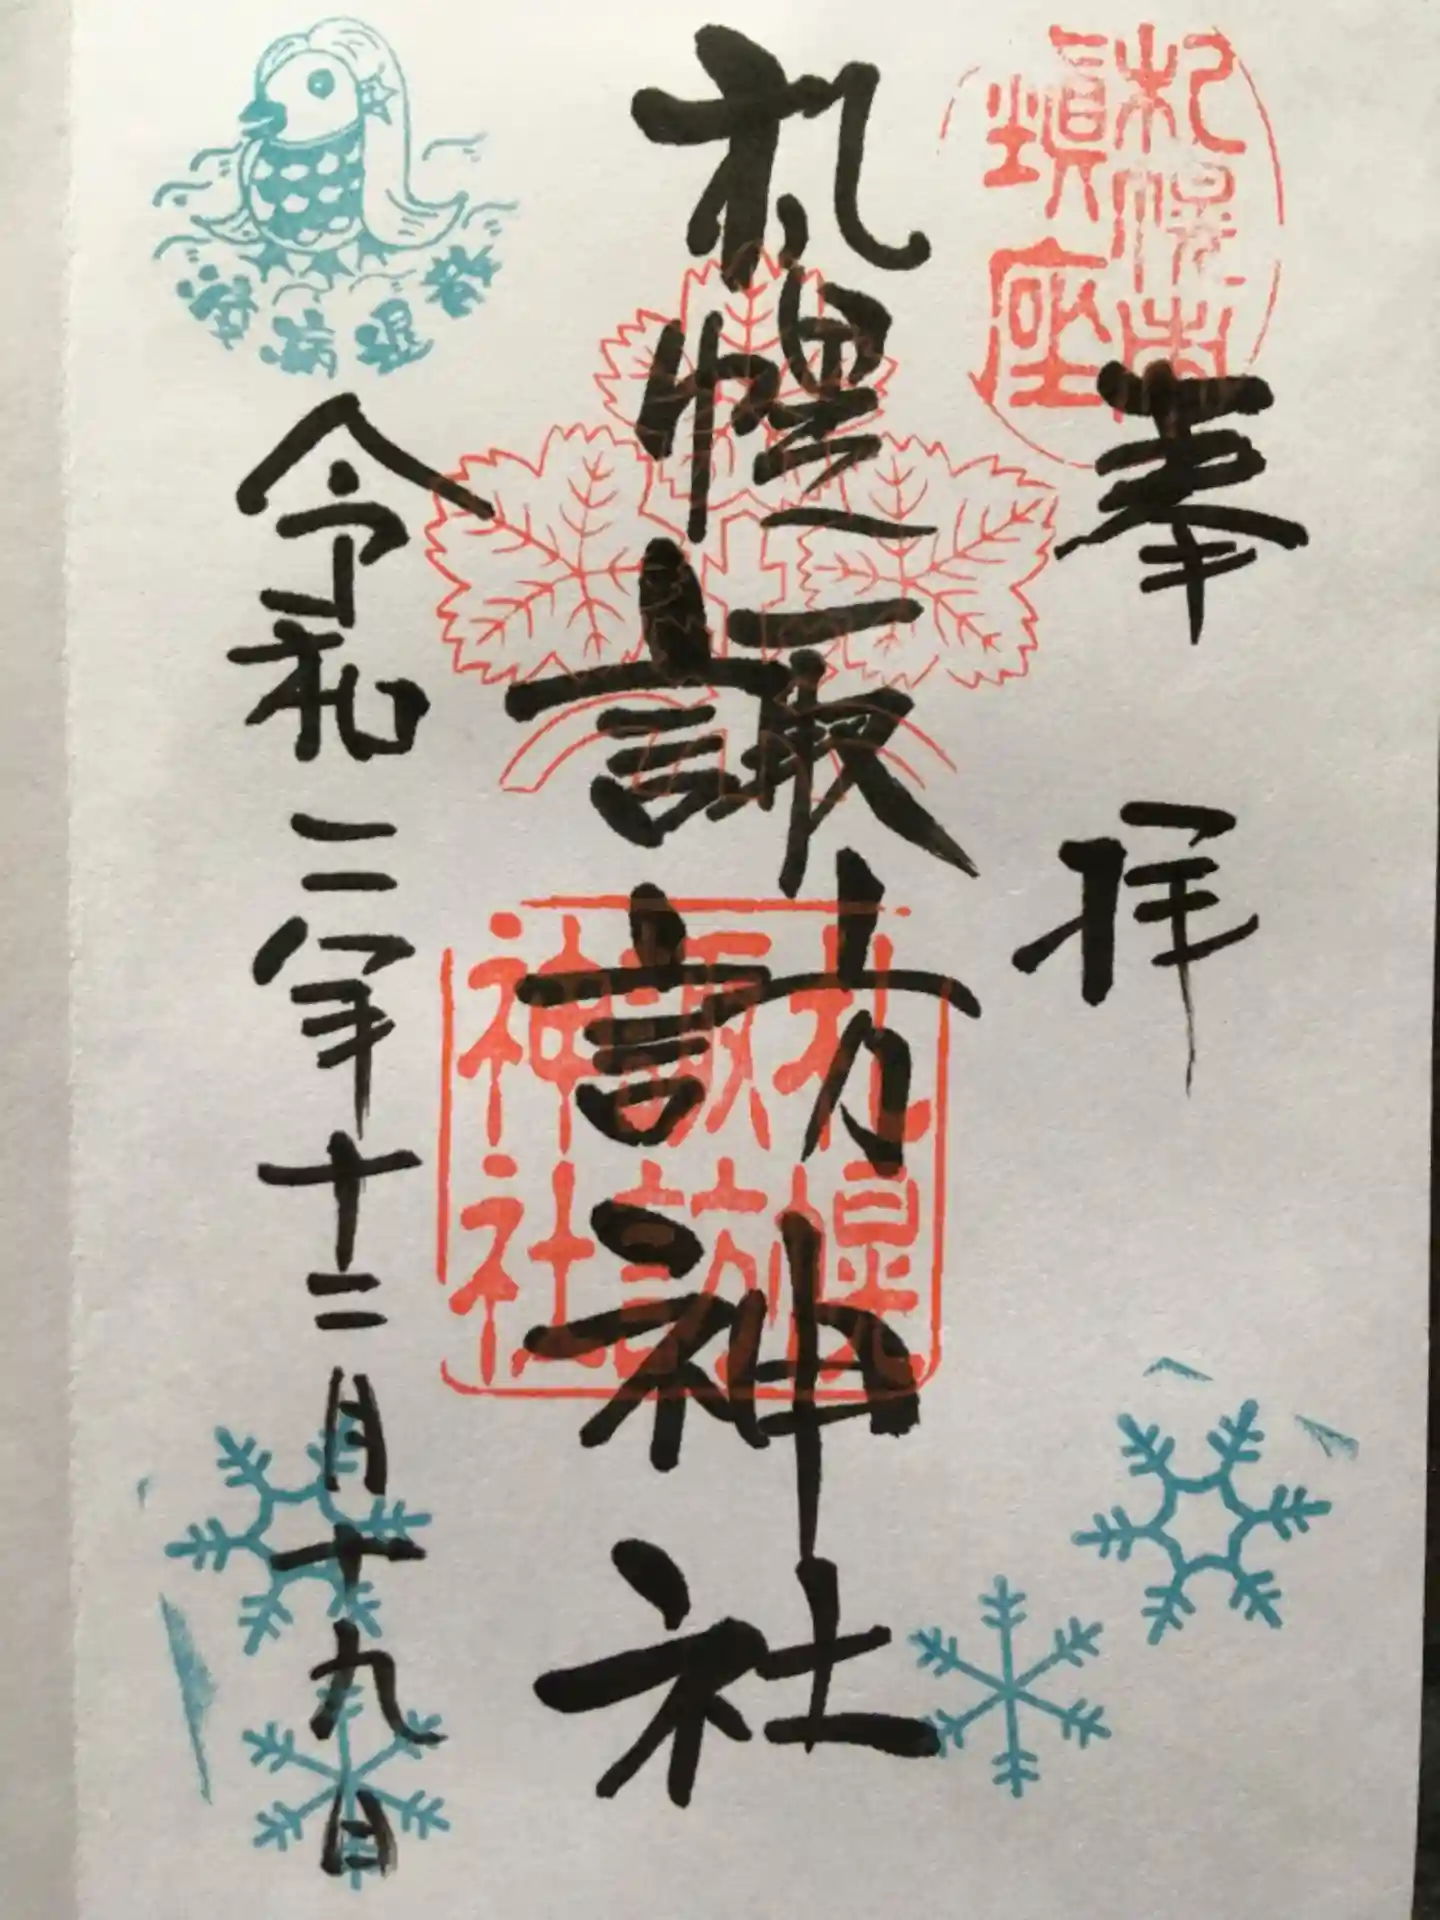 札幌市
鎮座
奉拝
札幌諏訪神社
札幌
諏訪
神社
疫病退散
令和二年十二月十九日